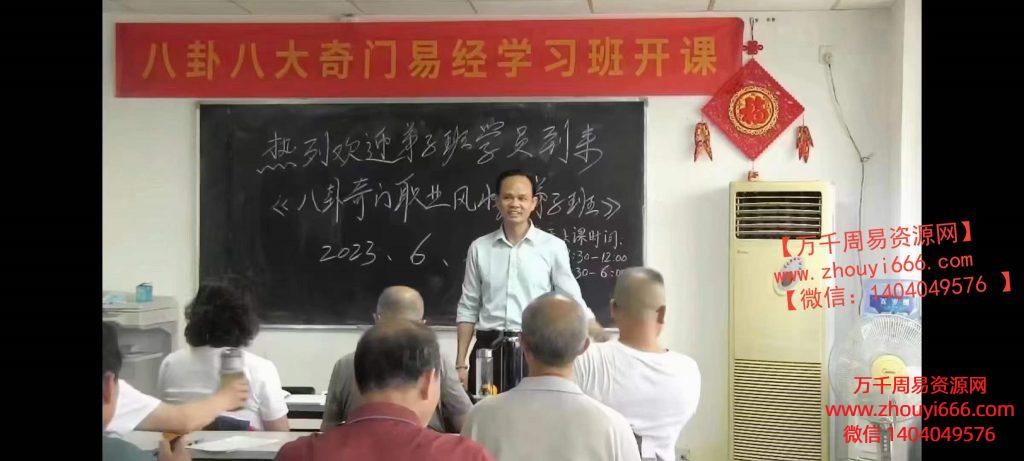 八卦八大奇门易经学习班开课
热列欢迎弟子班学员到来
《八卦奇门职业风水 弟子班》
2023、6、
上课时间.
:30-12:00
:30-6:00
福
【万千周易资源网】
www.zhouyi666.com
【微信：1404049576 】
万千周易资源网
www.zhouyi666.com
微信 1404049576